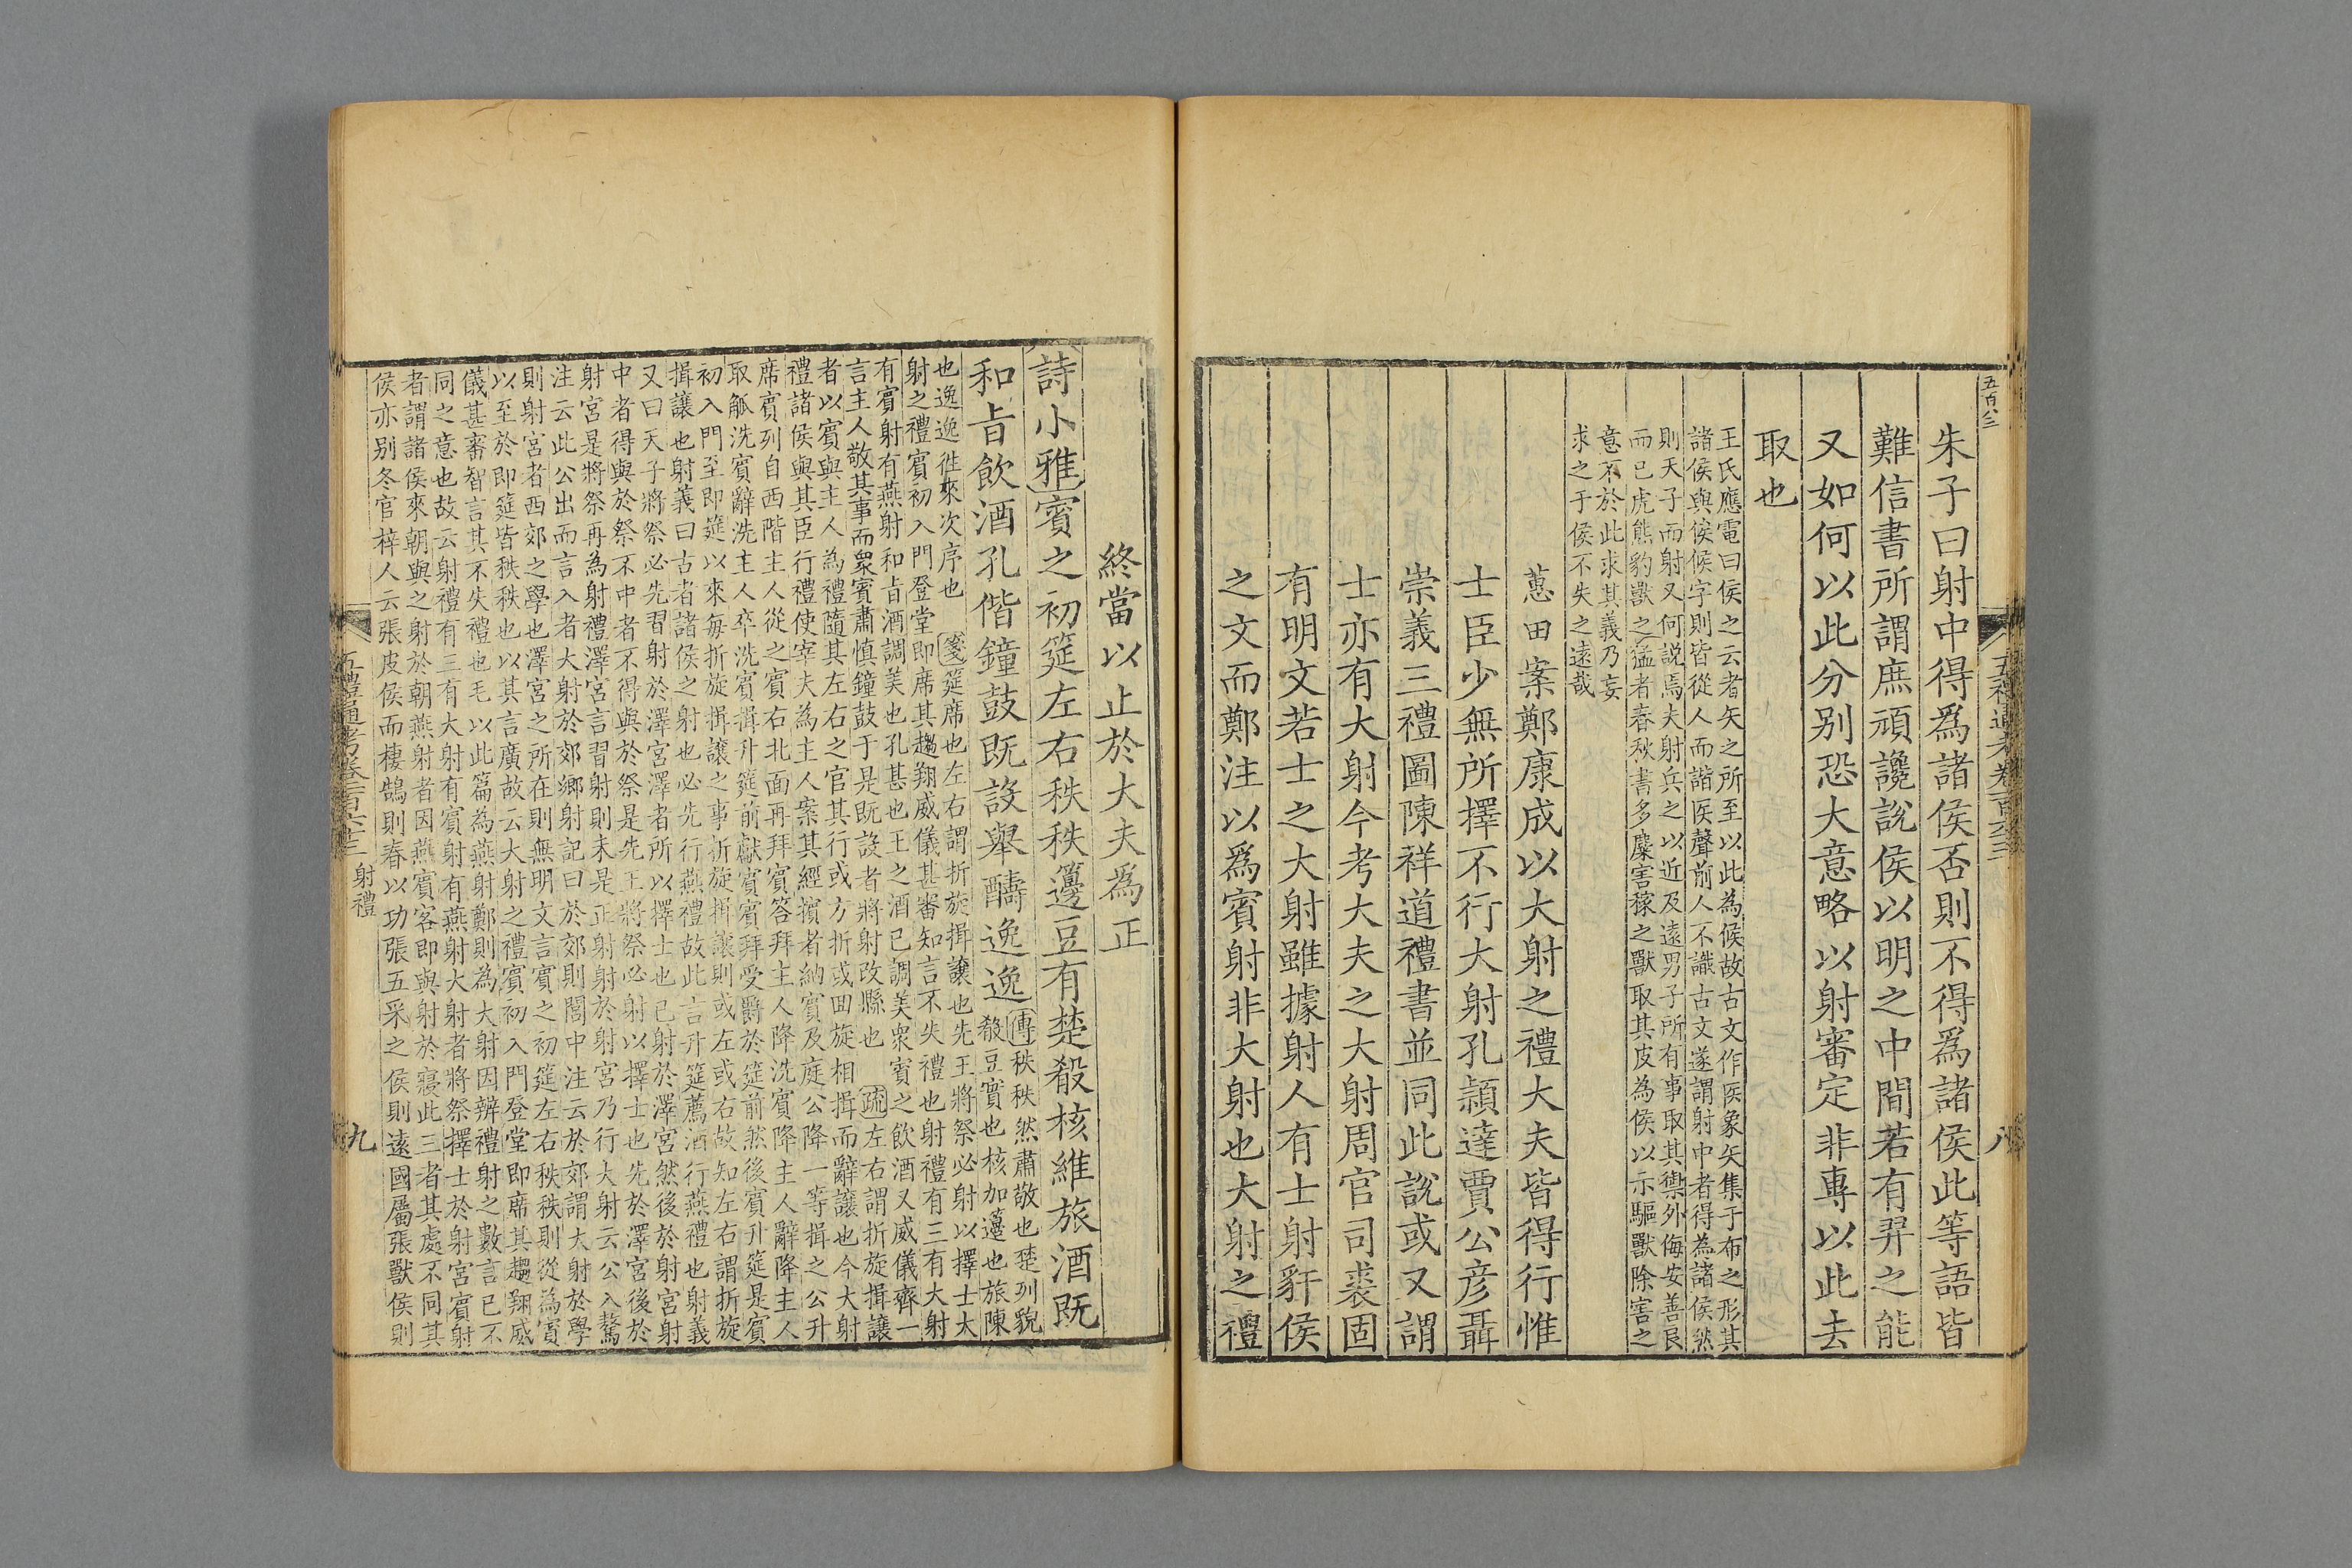 五百八三
五禮通考卷一百六十三
八
朱子曰射中得爲諸侯否則不得爲諸侯此等語皆
難信書所謂庶頑讒說侯以明之中間若有羿之能
又如何以此分别恐大意略以射審定非專以此去
取也
王氏應電曰侯之云者矢之所至以此為候故古文作矦象矢集于布之形其
諸侯與侯候字則皆從人而諧矦聲前人不識古文遂謂射中者得為諸侯然
則天子而射又何說焉夫射兵之以近及遠男子所有事取其禦外侮安善良
而已虎熊豹獸之猛者春秋書多麋害稼之獸取其皮為侯以示驅獸除害之
意不於此求其義乃妄
求之于侯不失之遠哉
蕙田案鄭康成以大射之禮大夫皆得行惟
士臣少無所擇不行大射孔頴達賈公彦聶
崇義三禮圖陳祥道禮書並同此說或又謂
士亦有大射今考大夫之大射周官司裘固
有明文若士之大射雖據射人有士射豻侯
之文而鄭注以爲賓射非大射也大射之禮
終當以止於大夫爲正
詩小雅賓之初筵左右秩秩籩豆有楚殽核維旅酒既
和旨飲酒孔偕鐘鼓既設舉醻逸逸
傳秩秩然肅敬也楚列貌
殽豆實也核加籩也旅陳
也逸逸徃來次序也 箋筵席也左右謂折旋揖讓也先王將祭必射以擇士大
射之禮賓初入門登堂即席其趨翔威儀甚審知言不失禮也射禮有三有大射
有賓射有燕射和旨酒調美也孔甚也王之酒已調美衆賓之飲酒又威儀齊一
言主人敬其事而衆賓肅慎鐘鼓于是既設者將射改縣也 疏左右謂折旋揖讓
者以賓與主人為禮隨其左右之官其行或方折或回旋相揖而辭讓也今大射
禮諸侯與其臣行禮使宰夫為主人案其經擯者納賓及庭公降一等揖之公升
席賓列自西階主人從之賓右北面再拜賓答拜主人降洗賓降主人辭降主人
取觚洗賓辭洗主人卒洗賓揖升筵前獻賓賓拜受爵於筵前然後賓升筵是賓
初入門至即筵以來每折旋揖讓之事折旋揖讓則或左或右故知左右謂折旋
揖讓也射義曰古者諸侯之射也必先行燕禮故此言升筵薦酒行燕禮也射義
又曰天子將祭必先習射於澤宮澤者所以擇士也已射於澤宮然後於射宮射
中者得與於祭不中者不得與於祭是先王將祭必射以擇士也先於澤宮後於
射宮是將祭再為射禮澤宮言習射則未是正射射於射宮乃行大射云公入驁
注云此公出而言入者大射於郊鄉射記曰於郊則閭中注云於郊謂大射於學
則射宮者西郊之學也澤宮之所在則無明文言賓之初筵左右秩秩則從為賓
以至於即筵皆秩秩也以其言廣故云大射之禮賓初入門登堂即席其趨翔威
儀甚審智言其不失禮也毛以此篇為燕射鄭則為大射因辨禮射之數言已不
同之意也故云射禮有三有大射有賓射有燕射大射者將祭擇士於射宮賓射
者謂諸侯來朝與之射於朝燕射者因燕賓客即與射於寢此三者其處不同其
侯亦别冬官梓人云張皮侯而棲鵠則春以功張五采之侯則遠國屬張獸侯則
五禮通考卷一百六十三 射禮
九